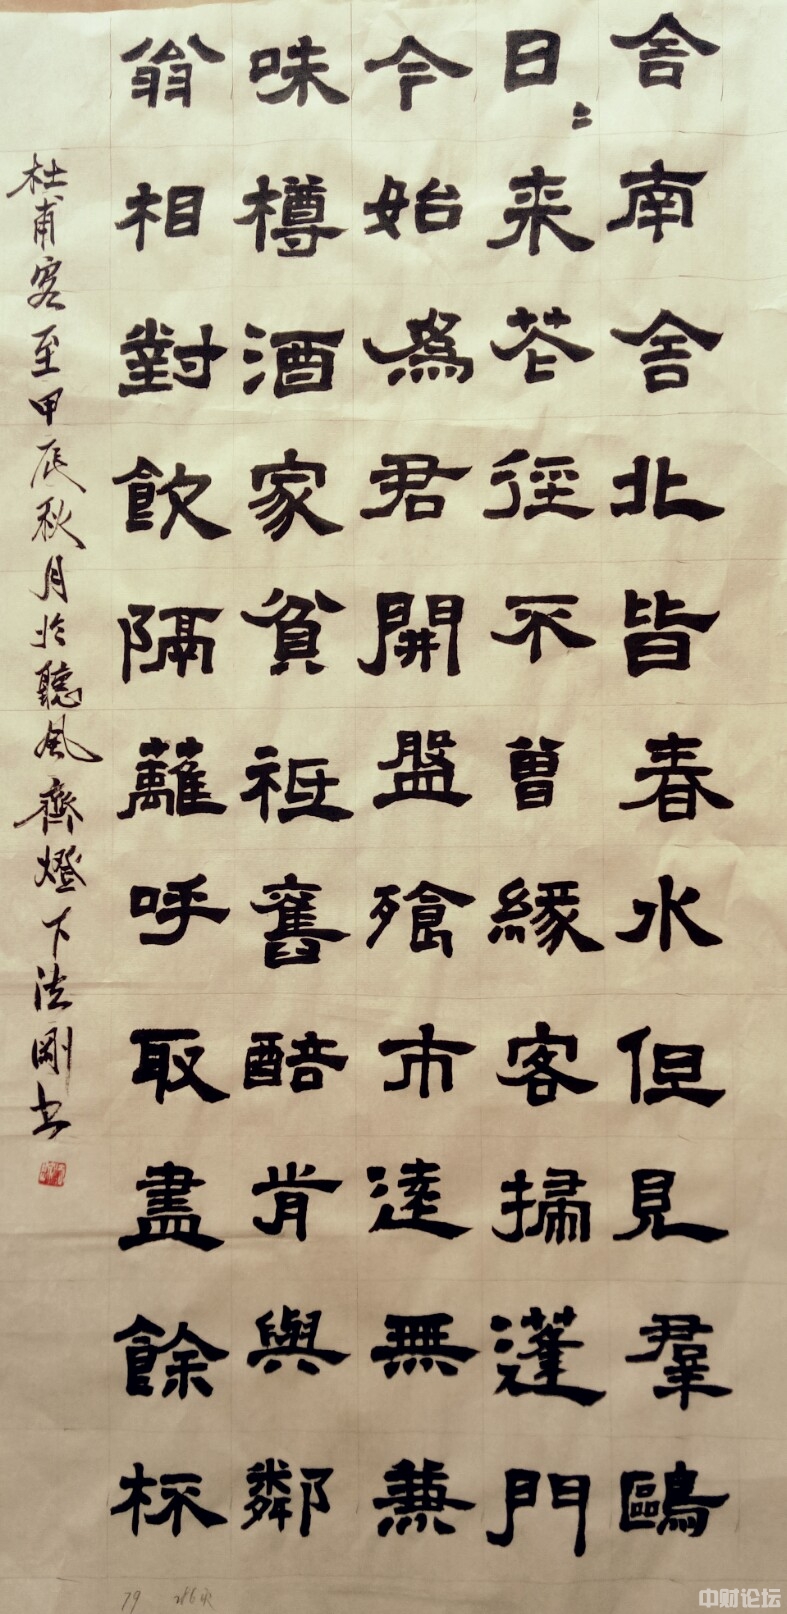 舍南舍北皆春水但見羣鷗
日〻来花徑不曾緣客掃蓬門
今始為君開盤飱市遠無兼
味樽酒家貧祗舊醅肯與鄰
翁相對飲隔蘺呼取盡餘杯
杜甫客至甲辰秋月於聽風齋燈下法剛书
79
中财论坛